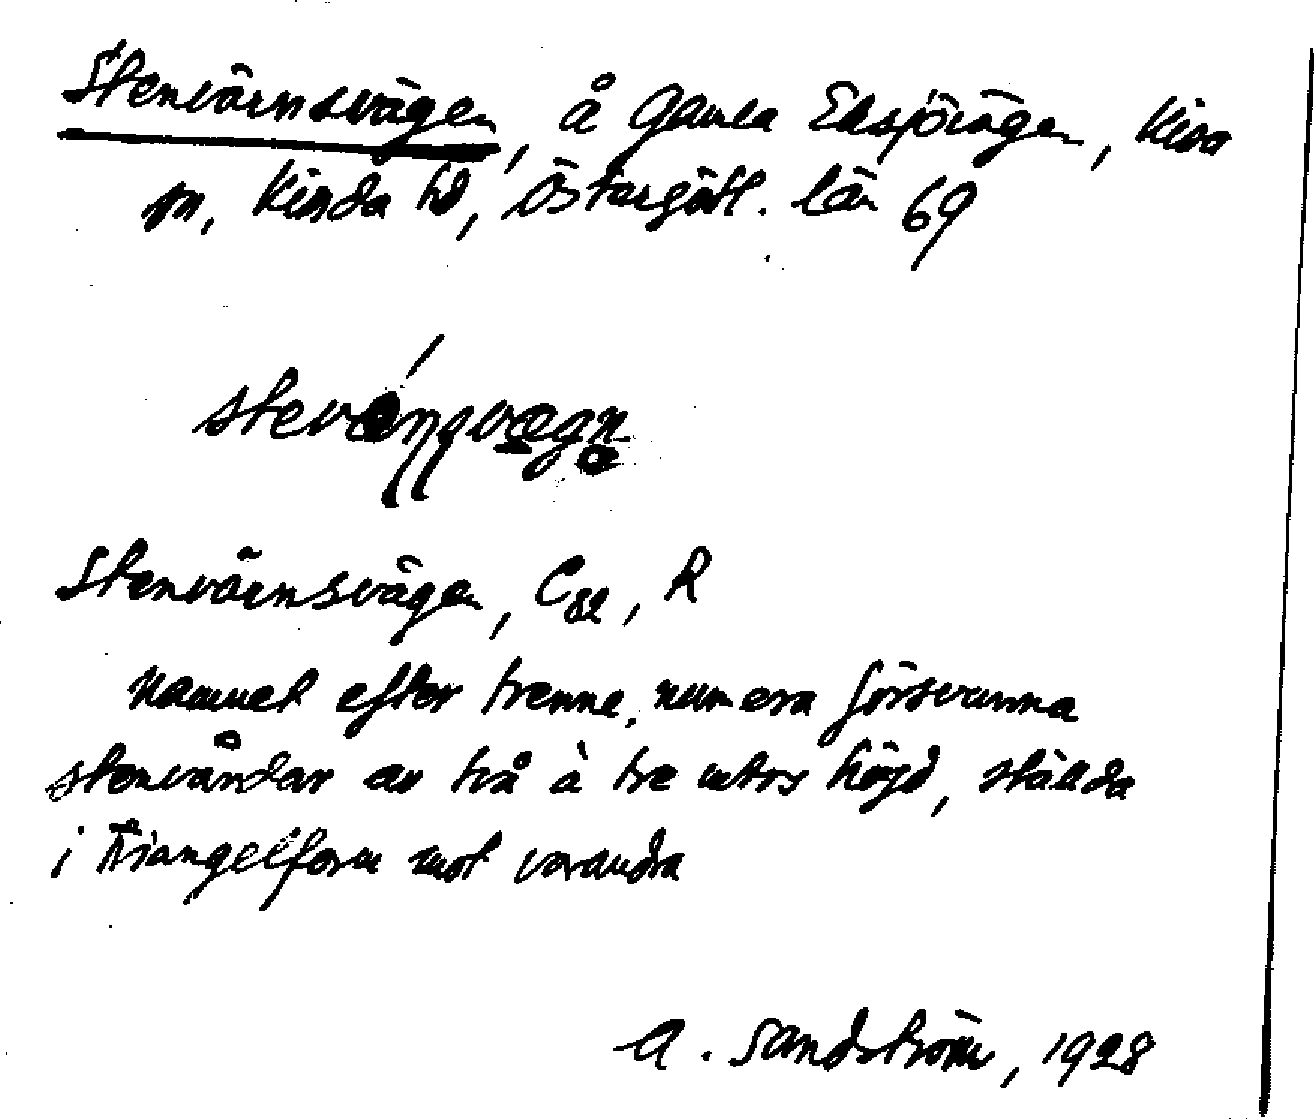 Stenvärnsvägen, å Gamla Eksjövägen, Kisa
sn, Kinda hd, Östergötl. län 69
Stenvärnsvägen, C82, R
Namnet efter trenne, numera försvunna
stenvårdar av två à tre mtrs höjd, ställda
i triangelform mot varandra
A. Sandström, 1928